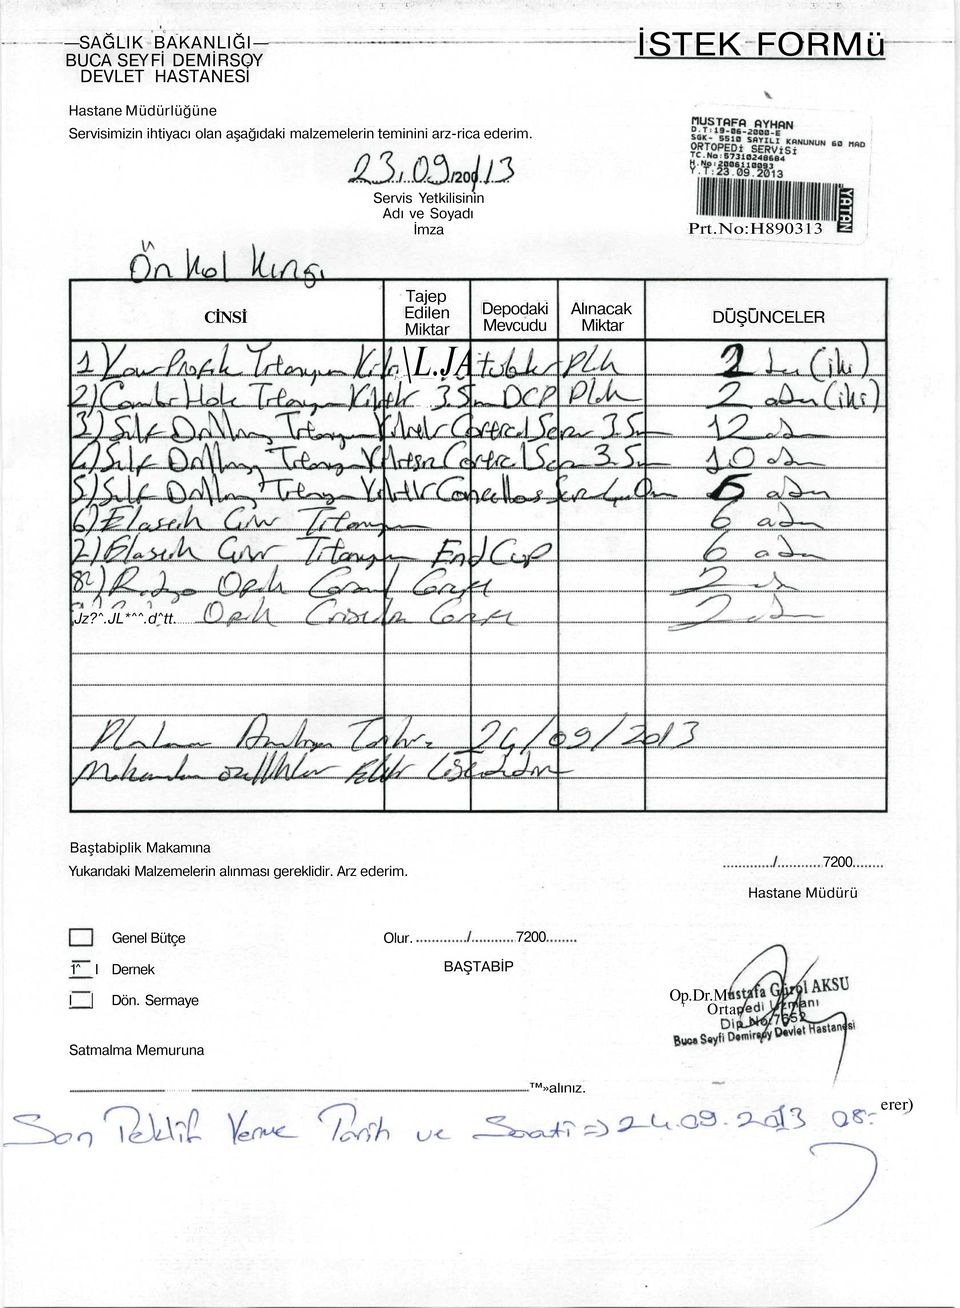 SAĞLIK BAKANLIĞI
BUCA SEYFİ DEMİRSOY
DEVLET HASTANESİ
İSTEK FORMü
Hastane Müdürlüğüne
Servisimizin ihtiyacı olan aşağıdaki malzemelerin teminini arz-rica ederim.
23.09/200 /13
Servis Yetkilisinin
Adı ve Soyadı
İmza
MUSTAFA AYHAN
D.T:19-06-2000-E
SGK- 5510 SAYILI KANUNUN 60 MAD
ORTOPEDİ SERVİSİ
TC.No:57310248684
H.No:2006110093
Y.T:23.09.2013
YATAN
Prt.No:H890313
Ön Kol Kırığı
CİNSİ
Tajep Edilen Miktar
Depodaki Mevcudu
Alınacak Miktar
DÜŞÜNCELER
1) Low Profil Titanyum \L.JA tubuler Plk 2 (iki)
2) Combi Hole Titanyum Kilitli 3.5 DCP Plak 2 adn (iki)
3) Self Drilling Titanyum Kilitli Cortical 3.5 12 adn
4) Self Drilling Titanyum Cortical 3.5 10 adn
5) Self Drilling Titanyum Kilitli 5 adn
6) Elastik Çivi Titanyum 6 adn
7) Elastik Çivi Titanyum End Cup 6 adn
8) Radyo Opak 2 ad
Jz?^.JL*^^.d^tt. Opak 2 ad
Planlanan Ameliyat Tarihi: 24/09/2013
özellikler
Baştabiplik Makamına
Yukarıdaki Malzemelerin alınması gereklidir. Arz ederim.
............/............7200........
Hastane Müdürü
Genel Bütçe
Olur. ............./............7200........
1^ I Dernek
BAŞTABİP
I Dön. Sermaye
Op.Dr.Mustafa Gürol AKSU
Ortapedi Uzmanı
Dip.No:7652
Buca Seyfi Demirsoy Devlet Hastanesi
Satmalma Memuruna
™»alınız.
erer)
Son Teklif Verme Tarih ve Saati => 24.09.2013 08: